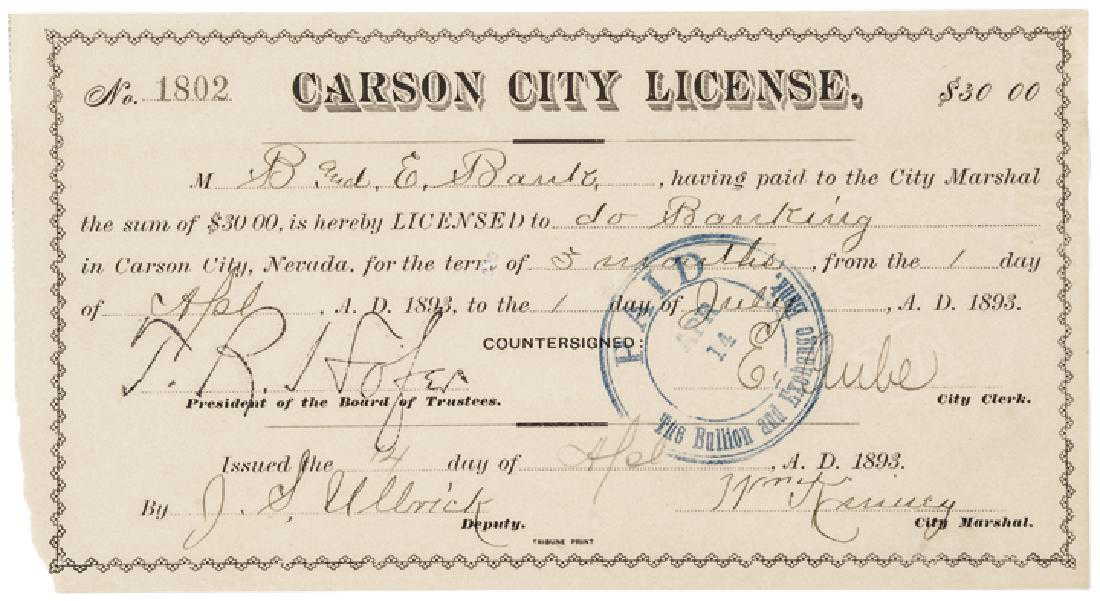 No. 1802 CARSON CITY LICENSE. $30 00
M B and E. Bank, having paid to the City Marshal
the sum of $30 00, is hereby LICENSED to do Banking
in Carson City, Nevada, for the term of 3 months, from the 1 day
of Apl, A. D. 1893, to the 1 day of July, A. D. 1893.
PAID
APR
14
The Bullion and Exchange Bank.
COUNTERSIGNED:
T. R. Hofer
President of the Board of Trustees.
City Clerk.
Issued the 4 day of Apl, A. D. 1893.
By J. S. Ullrick
Deputy.
Wm Kinney
City Marshal.
TRIBUNE PRINT